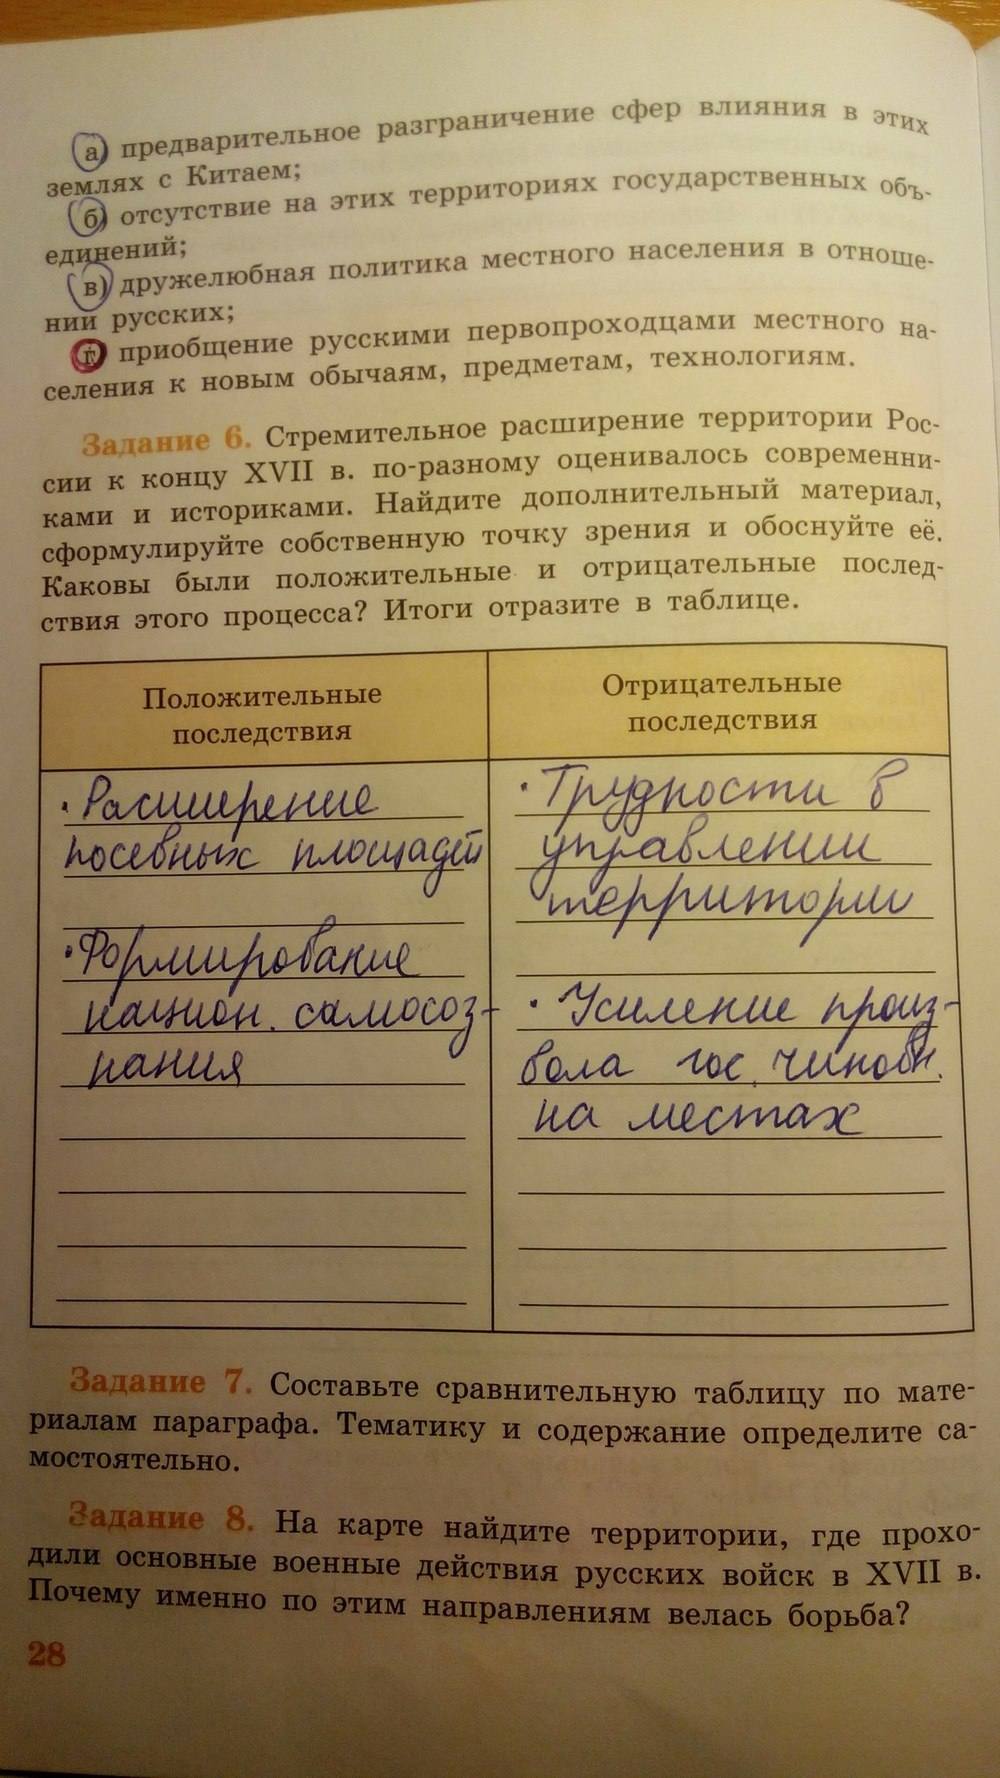 а) предварительное разграничение сфер влияния в этих
землях с Китаем;
б) отсутствие на этих территориях государственных объ-
единений;
в) дружелюбная политика местного населения в отноше-
нии русских;
г) приобщение русскими первопроходцами местного на-
селения к новым обычаям, предметам, технологиям.
Задание 6. Стремительное расширение территории Рос-
сии к концу XVII в. по-разному оценивалось современни-
ками и историками. Найдите дополнительный материал,
сформулируйте собственную точку зрения и обоснуйте её.
Каковы были положительные и отрицательные послед-
ствия этого процесса? Итоги отразите в таблице.
Положительные
последствия
· Расширение
посевных площадей
· Формирование
национ. самосоз-
нания
Отрицательные
последствия
· Трудности в
управлении
территории
· Усиление произ-
вола гос. чиновн.
на местах
Задание 7. Составьте сравнительную таблицу по мате-
риалам параграфа. Тематику и содержание определите са-
мостоятельно.
Задание 8. На карте найдите территории, где прохо-
дили основные военные действия русских войск в XVII в.
Почему именно по этим направлениям велась борьба?
28